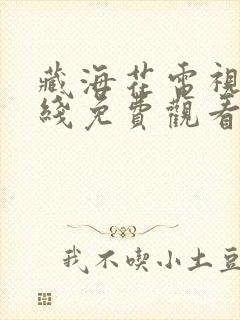 藏海花電視
綫免費觀看
我不喫小土豆